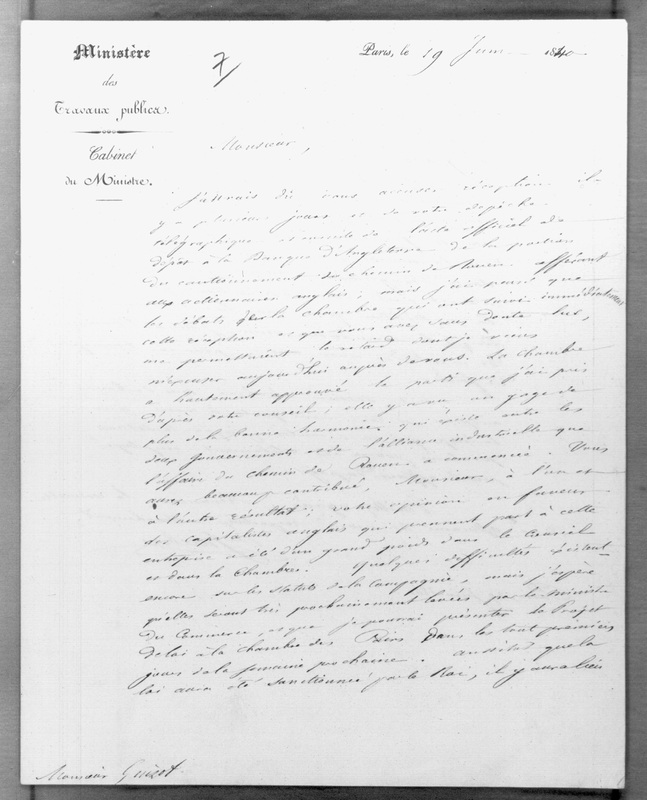 Ministère
des
Travaux publics.
Cabinet
du Ministre.
7
Paris, le 19 Juin 1840
Monsieur,
J'aurais dû vous accuser réception il
y a plusieurs jours et de votre dépêche
télégraphique et ensuite de l'acte officiel de
dépôt à la Banque d'Angleterre de la portion
du cautionnement du chemin de Rouen afférant
aux actionnaires anglais; mais j'ai pensé que
les débats de la Chambre qui ont suivi immédiatement
cette réception et que vous avez sans doute lus,
me permettaient le retard dont je viens
m'excuser aujourd'hui auprès de vous. La Chambre
a hautement approuvé le parti que j'ai pris
d'après votre conseil; elle y a vu un gage de
plus de la bonne harmonie qui existe entre les
deux gouvernements et de l'alliance industrielle que
l'affaire du chemin de Rouen a commencé. Vous
avez beaucoup contribué, Monsieur, à l'un et
à l'autre résultat; votre opinion en faveur
des capitalistes anglais qui prennent part à cette
entreprise a été d'un grand poids dans le Conseil
et dans la Chambre. Quelques difficultés existent
encore sur les statuts de la Compagnie, mais j'espère
qu'elles seront très prochainement levées par le ministre
du Commerce et que je pourrai présenter le Projet
de loi à la chambre des Pairs dans les tout premiers
jours de la semaine prochaine. aussitôt que la
loi aura été sanctionnée par le Roi, il y aura lieu
Monsieur Guizot.